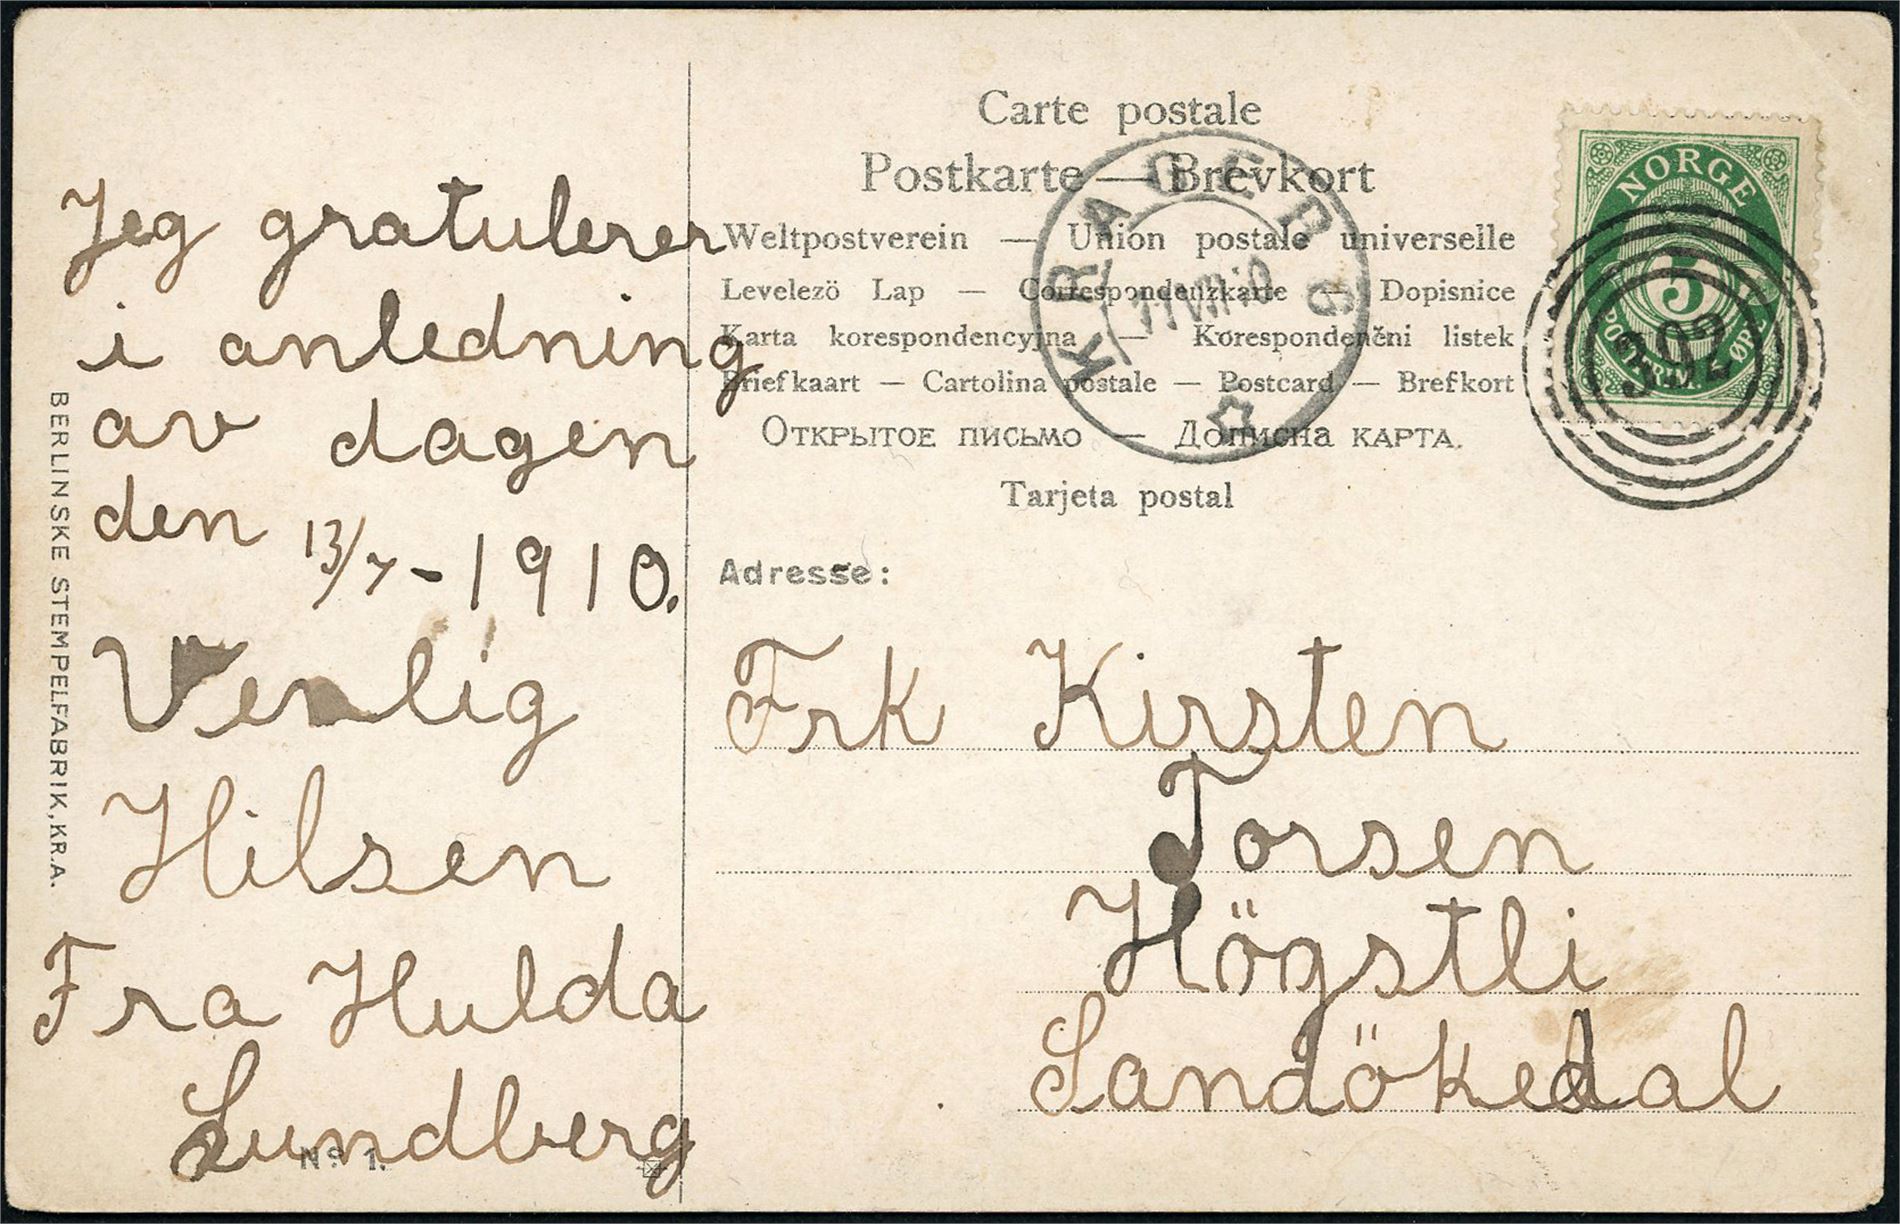 Carte postale
Postkarte — Brevkort
Weltpostverein — Union postale universelle
Levelezö Lap — Correspondenzkarte — Dopisnice
Karta korespondencyjna — Korespondenčni listek
Briefkaart — Cartolina postale — Postcard — Brefkort
Открытое письмо — Дописна карта.
Tarjeta postal
NORGE
5
POSTFRIM. ØRE
302
KRAGERØ
Jeg gratulerer
i anledning
av dagen
den 13/7-1910.
Venlig
Hilsen
Fra Hulda
Lundberg
Adresse:
Frk Kirsten
Torsen
Högstli
Sandökedal
BERLINSKE STEMPELFABRIK, KR.A.
No 1.